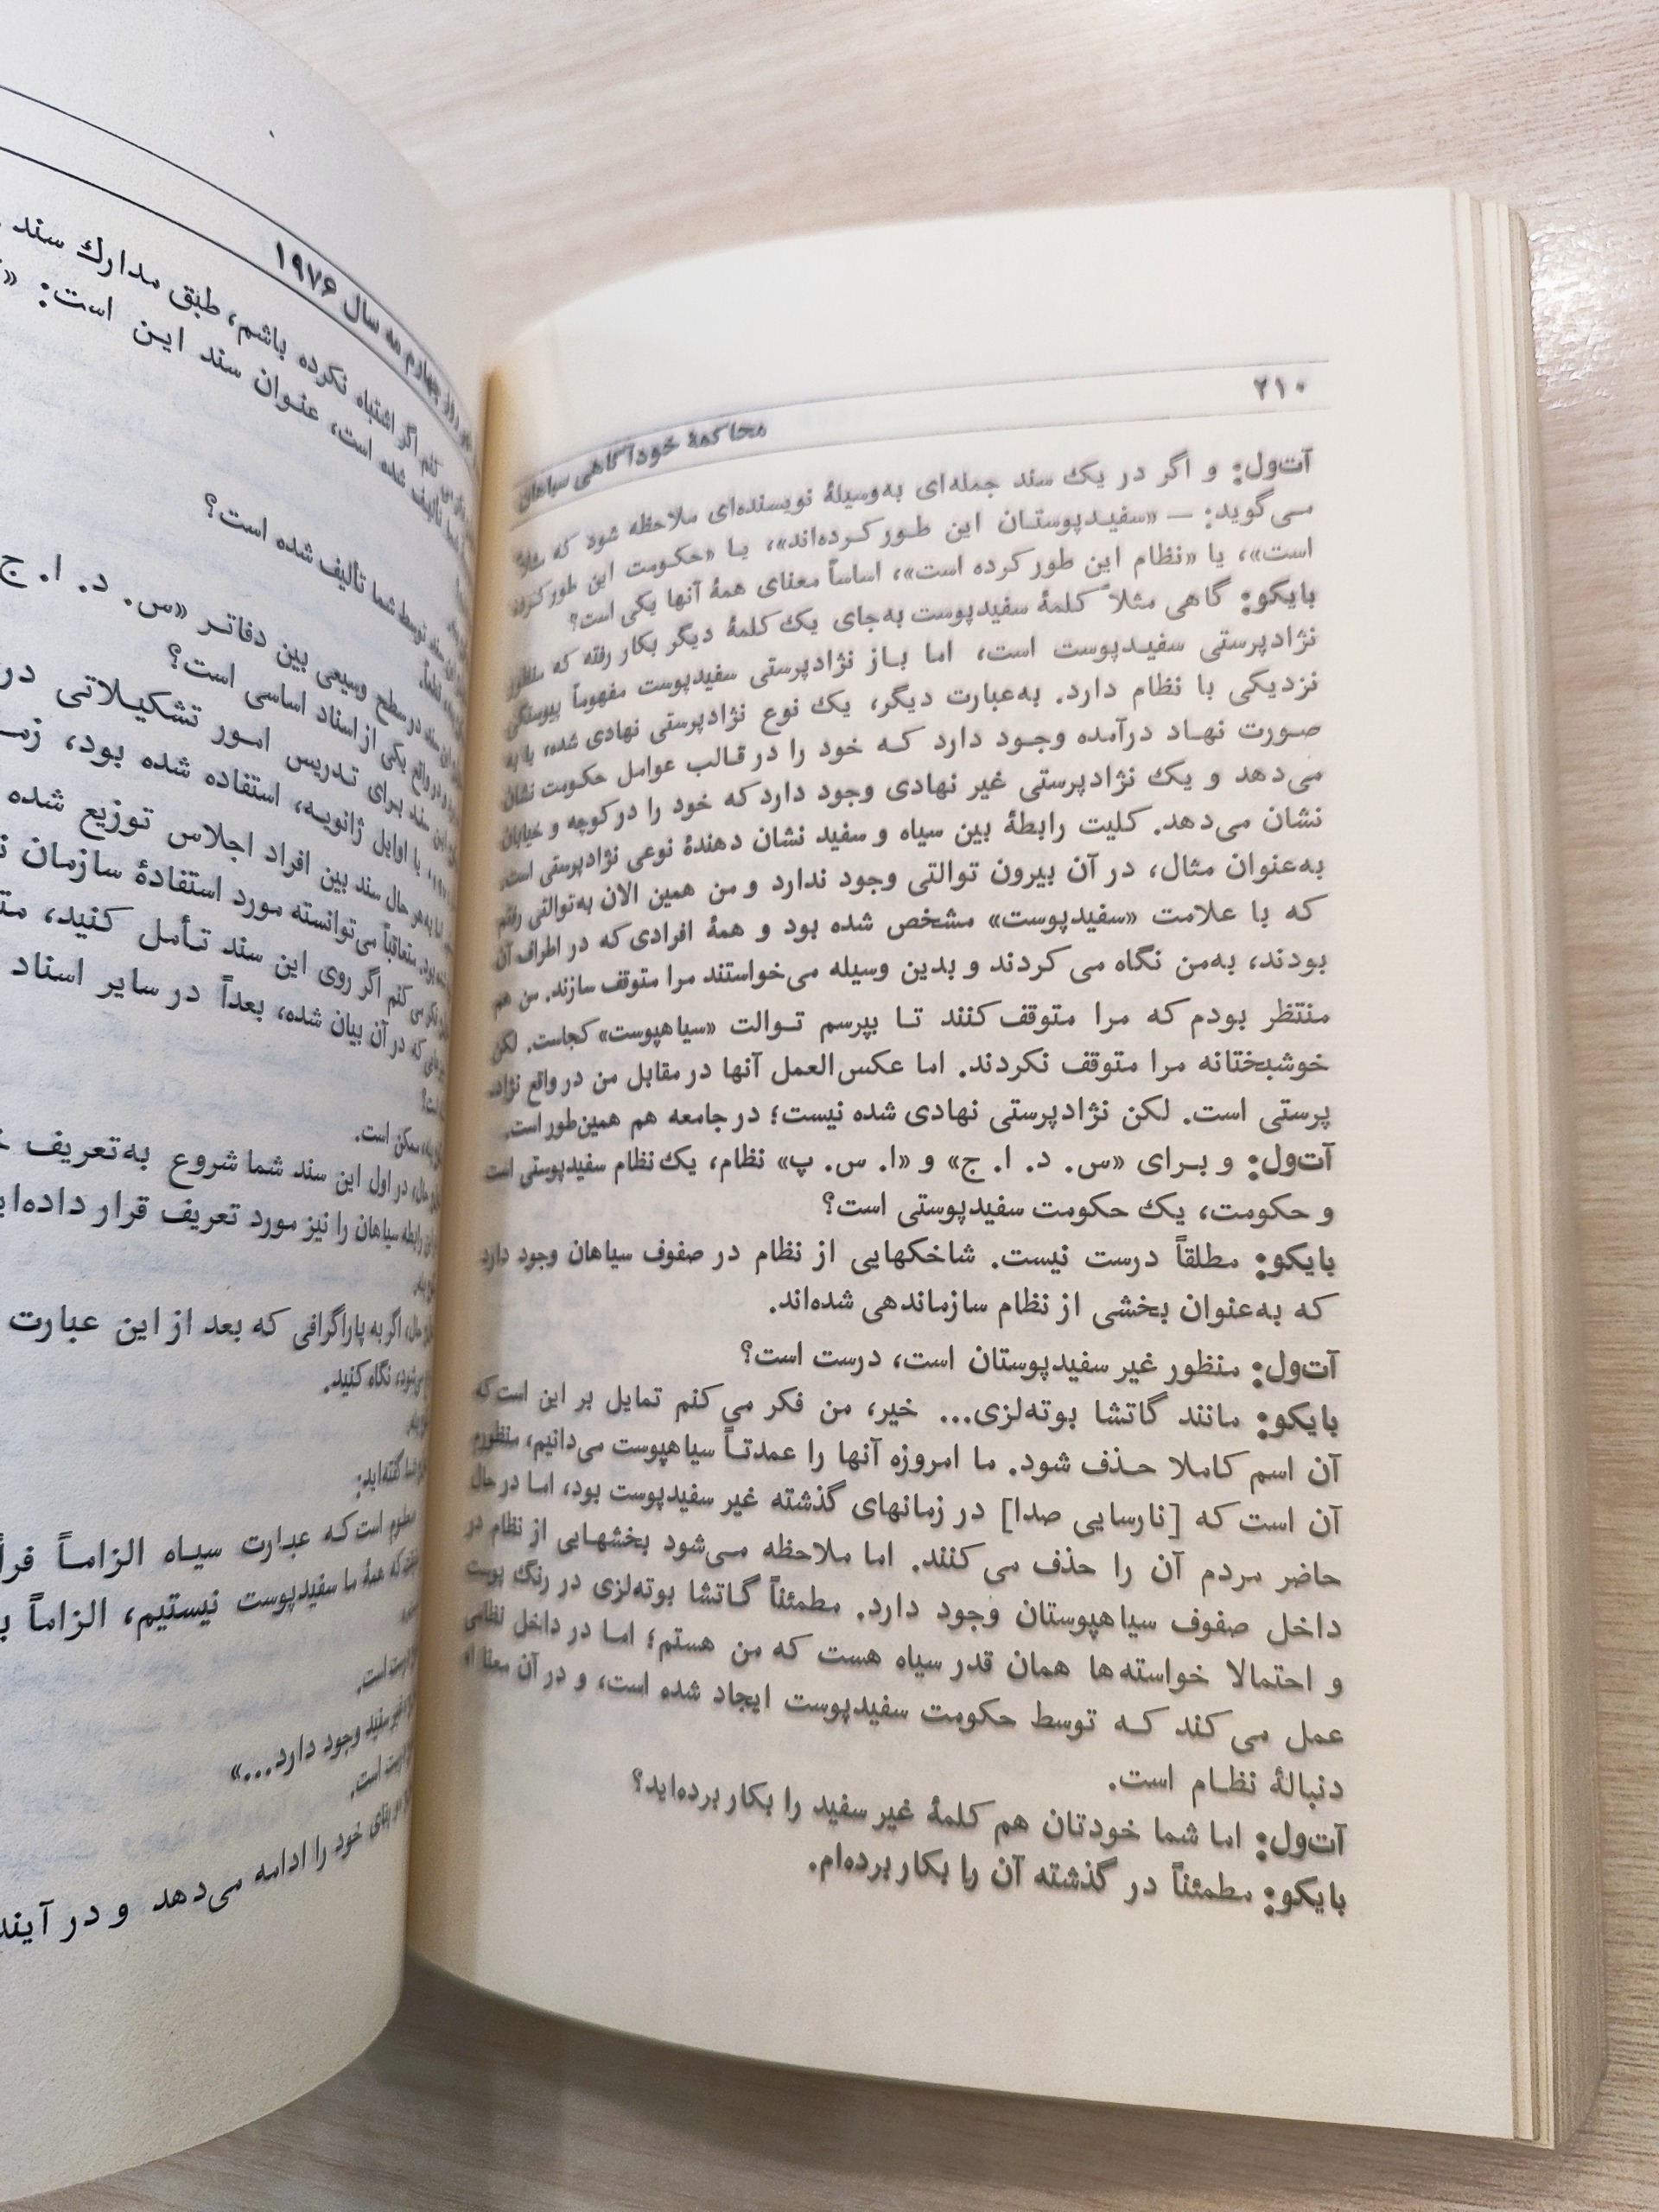 ۲۱۰
محاکمهٔ خودآگاهی سیاهان
آت‌ول: و اگر در یک سند جمله‌ای به‌وسیلهٔ نویسنده‌ای ملاحظه شود که مثلاً
می‌گوید: — «سفیدپوستان این طور کرده‌اند»، یا «حکومت این طور کرده
است»، یا «نظام این طور کرده است»، اساساً معنای همهٔ آنها یکی است؟
بایکو: گاهی مثلاً کلمهٔ سفیدپوست به‌جای یک کلمهٔ دیگر بکار رفته که منظور
نژادپرستی سفیدپوست است، اما باز نژادپرستی سفیدپوست مفهوماً پیوستگی
نزدیکی با نظام دارد. به‌عبارت دیگر، یک نوع نژادپرستی نهادی شده، یا به
صورت نهاد درآمده وجود دارد که خود را در قالب عوامل حکومت نشان
می‌دهد و یک نژادپرستی غیر نهادی وجود دارد که خود را در کوچه و خیابان
نشان می‌دهد. کلیت رابطهٔ بین سیاه و سفید نشان دهندهٔ نوعی نژادپرستی است.
به‌عنوان مثال، در آن بیرون توالتی وجود ندارد و من همین الان به‌توالتی رفتم
که با علامت «سفیدپوست» مشخص شده بود و همهٔ افرادی که در اطراف آن
بودند، به‌من نگاه می‌کردند و بدین وسیله می‌خواستند مرا متوقف سازند. من هم
منتظر بودم که مرا متوقف کنند تا بپرسم توالت «سیاهپوست» کجاست. لکن
خوشبختانه مرا متوقف نکردند. اما عکس‌العمل آنها در مقابل من در واقع نژاد-
پرستی است. لکن نژادپرستی نهادی شده نیست؛ در جامعه هم همین‌طور است.
آت‌ول: و برای «س. د. ا. ج» و «ا. س. پ» نظام، یک نظام سفیدپوستی است
و حکومت، یک حکومت سفیدپوستی است؟
بایکو: مطلقاً درست نیست. شاخکهایی از نظام در صفوف سیاهان وجود دارد
که به‌عنوان بخشی از نظام سازماندهی شده‌اند.
آت‌ول: منظور غیر سفیدپوستان است، درست است؟
بایکو: مانند گاتشا بوته‌لزی... خیر، من فکر می‌کنم تمایل بر این است که
آن اسم کاملا حذف شود. ما امروزه آنها را عمدتاً سیاهپوست می‌دانیم، منظورم
آن است که [نارسایی صدا] در زمانهای گذشته غیر سفیدپوست بود، اما در حال
حاضر مردم آن را حذف می‌کنند. اما ملاحظه می‌شود بخشهایی از نظام در
داخل صفوف سیاهپوستان وجود دارد. مطمئناً گاتشا بوته‌لزی در رنگ پوست
و احتمالا خواسته‌ها همان قدر سیاه هست که من هستم؛ اما در داخل نظامی
عمل می‌کند که توسط حکومت سفیدپوست ایجاد شده است، و در آن معنا او
دنبالهٔ نظام است.
آت‌ول: اما شما خودتان هم کلمهٔ غیر سفید را بکار برده‌اید؟
بایکو: مطمئناً در گذشته آن را بکار برده‌ام.
روز چهارم مه سال ۱۹۷۶
اگر اشتباه نکرده باشم، طبق مدارک سند
تألیف شده است، عنوان سند این است: «
سند توسط شما تألیف شده است؟
سند در سطح وسیعی بین دفاتر «س. د. ا. ج
در واقع یکی از اسناد اساسی است؟
این سند برای تدریس امور تشکیلاتی در
یا اوایل ژانویه، استفاده شده بود،
اما به‌هر حال سند بین افراد اجلاس توزیع شده
متعاقباً می‌توانسته مورد استفادهٔ سازمان
کنم اگر روی این سند تأمل کنید،
که در آن بیان شده، بعداً در سایر اسناد
ممکن است.
در اول این سند شما شروع به‌تعریف
رابطه سیاهان را نیز مورد تعریف قرار داده‌اید
اگر به پاراگرافی که بعد از این عبارت
می‌شود، نگاه کنید.
گفته‌اید:
معلوم است که عبارت سیاه الزاماً
که همهٔ ما سفیدپوست نیستیم، الزاماً
است.
غیر سفید وجود دارد...»
است.
خود را ادامه می‌دهد و در